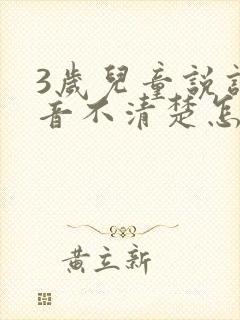 3歲兒童說
音不清楚怎
黃立新